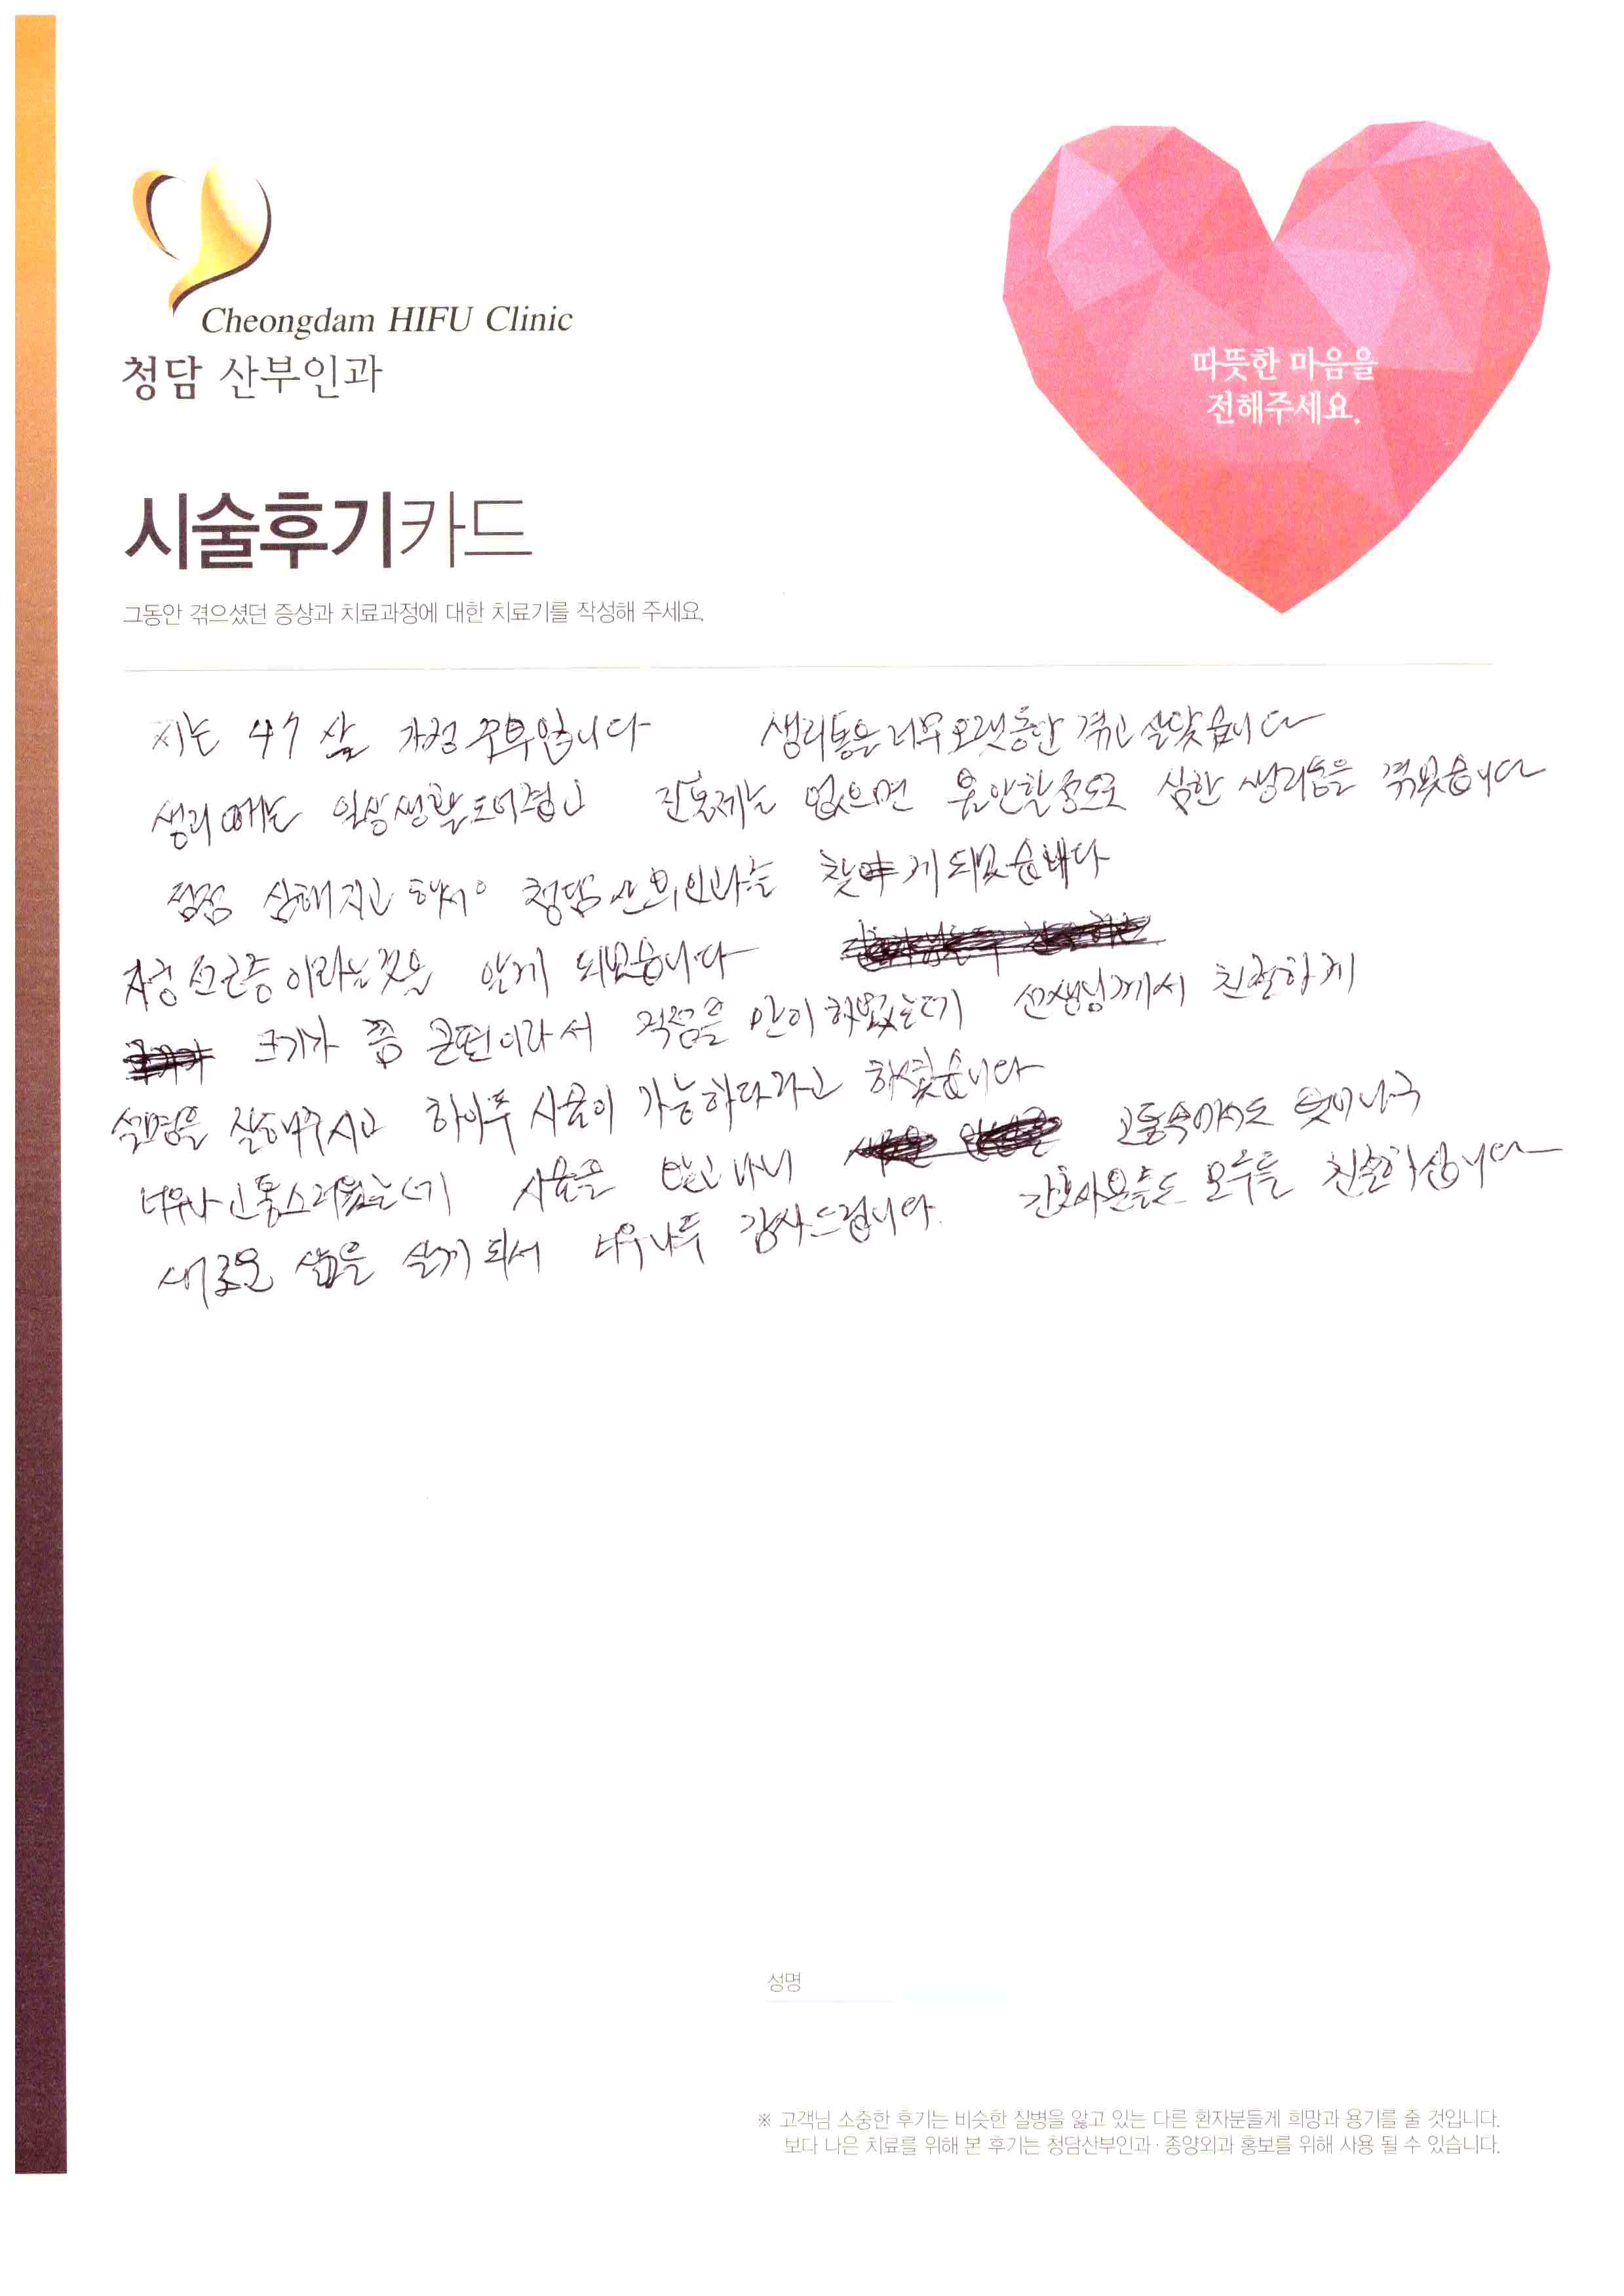 Cheongdam HIFU Clinic
청담 산부인과
따뜻한 마음을
전해주세요.
시술후기카드
그동안 겪으셨던 증상과 치료과정에 대한 치료기를 작성해 주세요.
저는 47살 가정 주부입니다 생리통은 너무 오랫동안 겪고 살았습니다
생리때는 일상생활도어렵고 진통제는 없으면 불안할정도로 심한 생리통을 겪었습니다
점점 심해지고 해서 청담산부인과를 찾게 되었습니다
자궁선근증이라는것을 알게 되었습니다
크기가 쫌 큰편이라서 걱정을 많이 하였는데 선생님께서 친절하게
설명을 잘해주시고 하이푸 시술이 가능하다라고 하셨습니다
너무나 고통스러웠는데 시술을 받고나니 고통속에서도 벗어나구
새로운 삶을 살게되서 너무나두 감사드립니다. 간호사분들도 모두들 친절하십니다
성명
※ 고객님 소중한 후기는 비슷한 질병을 앓고 있는 다른 환자분들게 희망과 용기를 줄 것입니다.
보다 나은 치료를 위해 본 후기는 청담산부인과·종양외과 홍보를 위해 사용 될 수 있습니다.